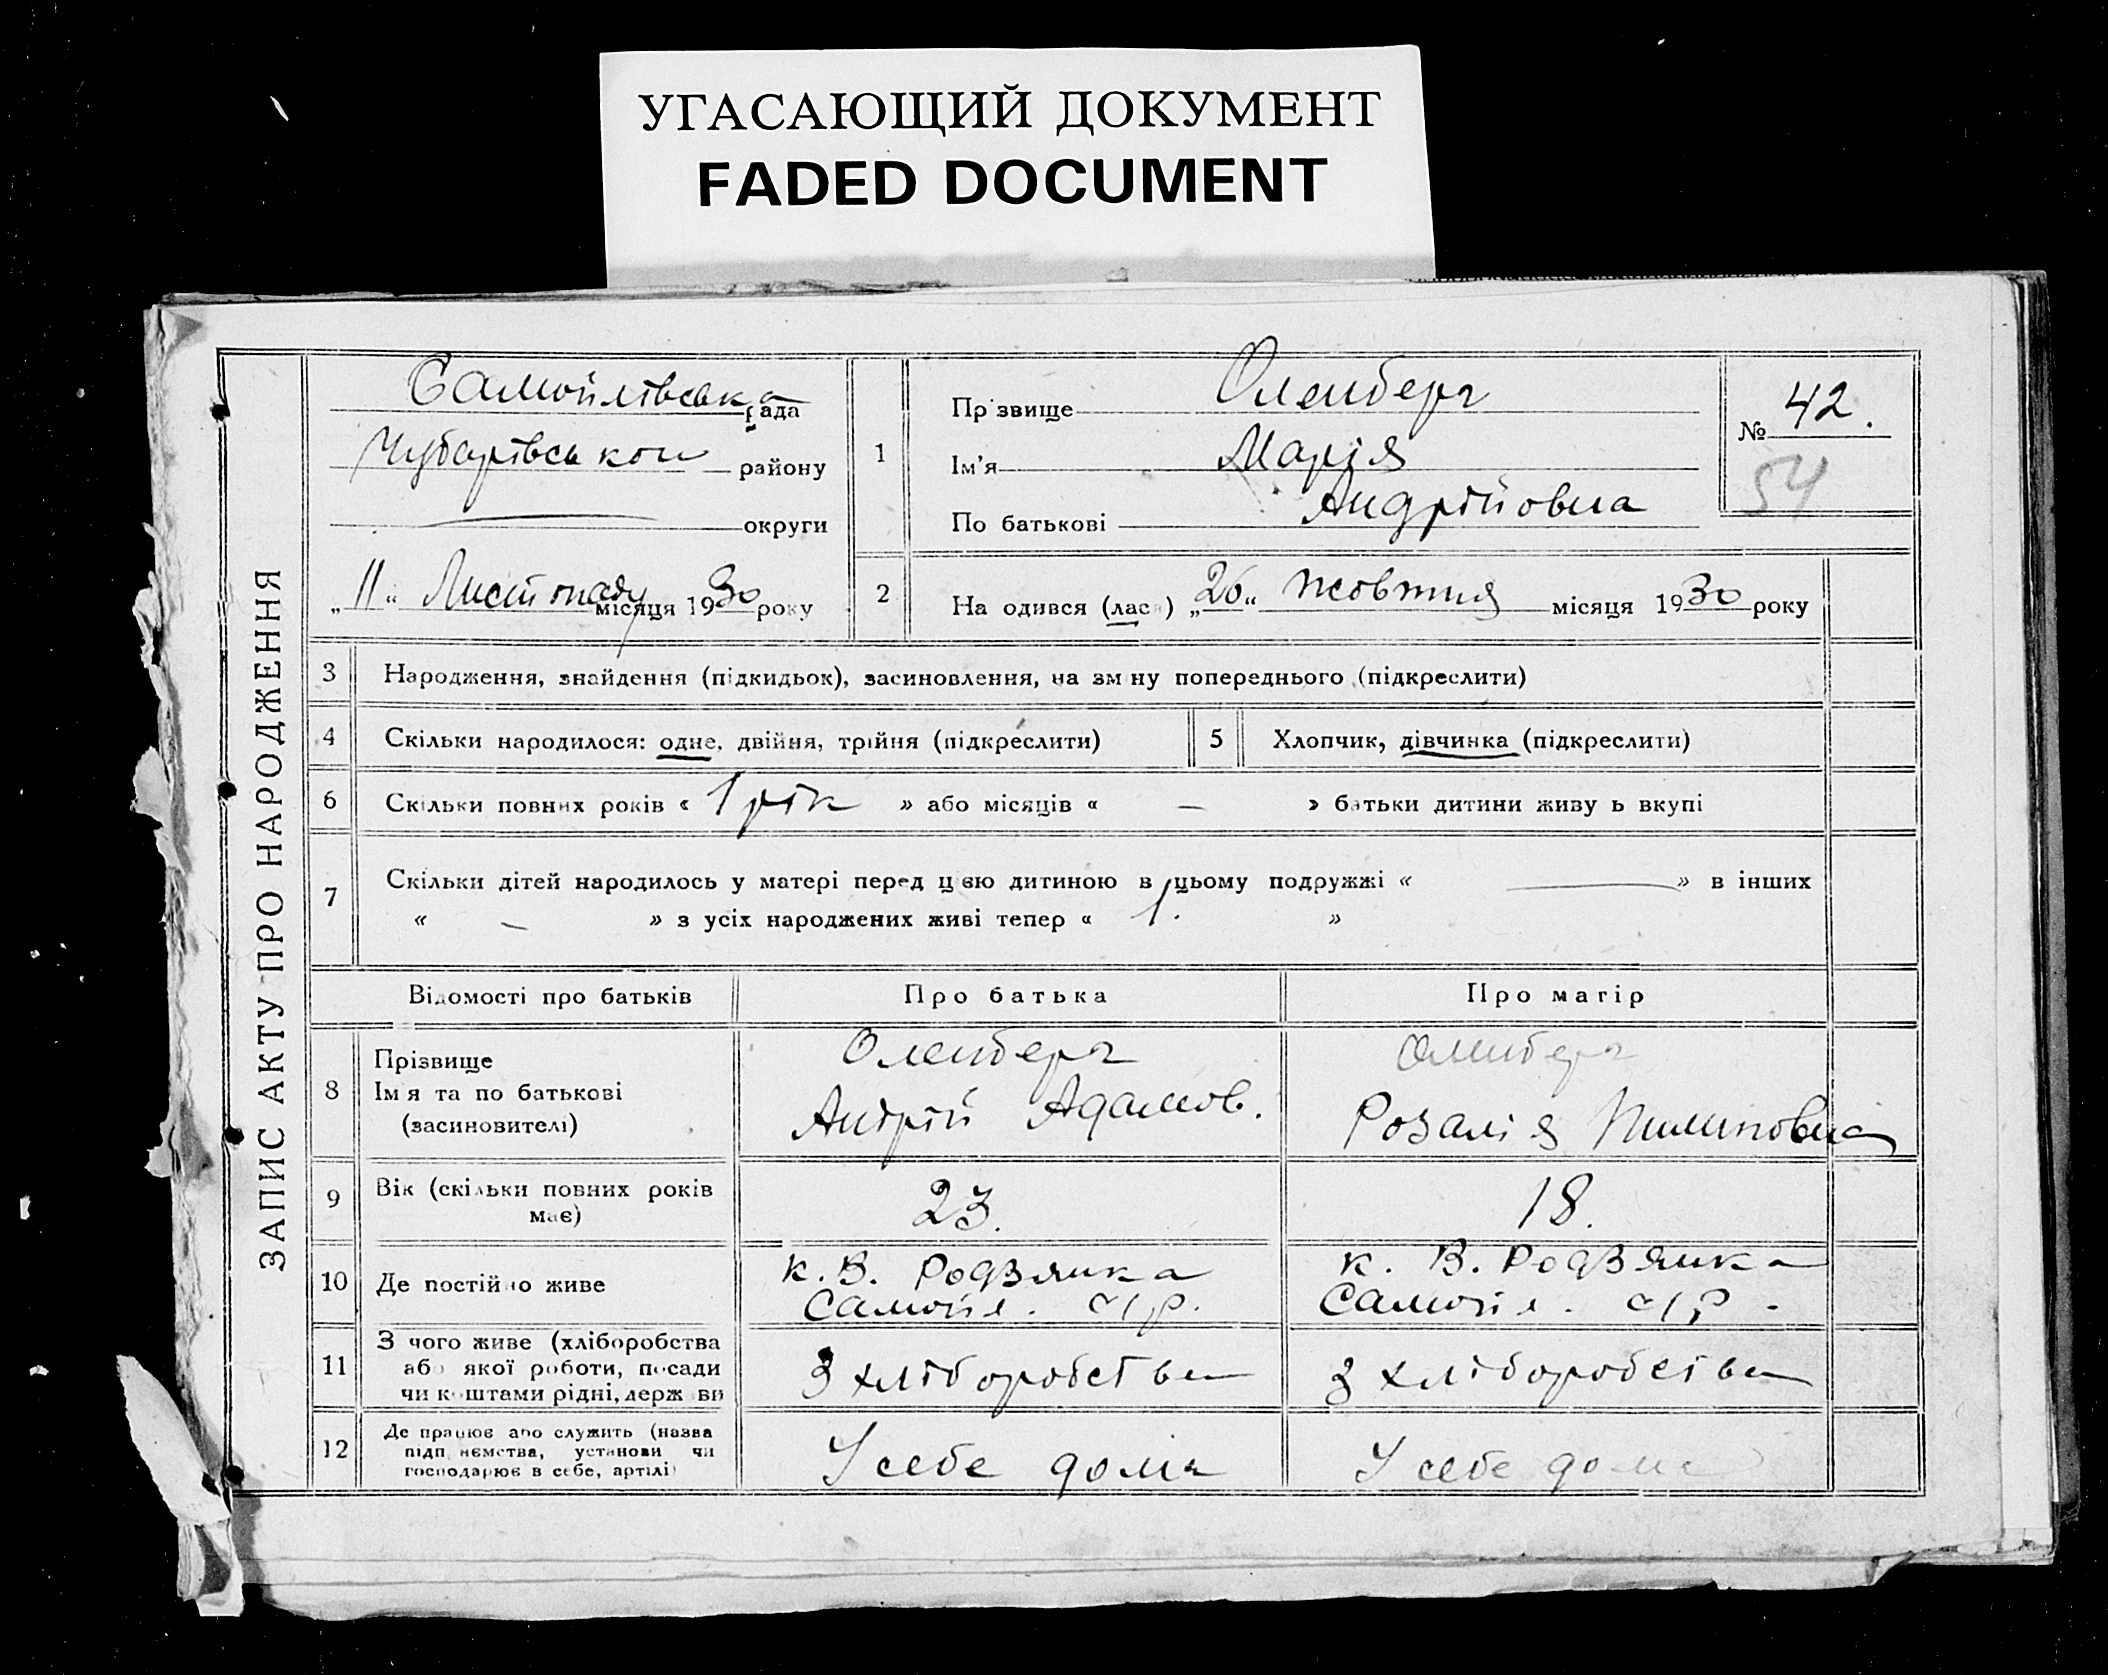 УГАСАЮЩИЙ ДОКУМЕНТ
FADED DOCUMENT
ЗАПИС АКТУ ПРО НАРОДЖЕННЯ
Самойлівська рада
Чубарівської району
округи
„11“ Листопаду місяця 1930 року
1
Прізвище Оленберг
Ім'я Марія
По батькові Андрійовна
№ 42.
54
2
На одився (лася) „26“ жовтня місяця 1930 року
3 Народження, знайдення (підкидьок), засиновлення, на зміну попереднього (підкреслити)
4 Скільки народилося: одне, двійня, трійня (підкреслити)
5 Хлопчик, дівчинка (підкреслити)
6 Скільки повних років « 1 рік » або місяців « — » батьки дитини живу ь вкупі
7 Скільки дітей народилось у матері перед цією дитиною в цьому подружжі « — » в інших
« — » з усіх народжених живі тепер « 1. »
Відомості про батьків
Про батька
Про матір
8 Прізвище
Ім я та по батькові
(засиновителі)
Оленберг
Андрій Адамов.
Оленберг
Розалія Пилиповна
9 Вік (скільки повних років
має)
23.
18.
10 Де постійно живе
к. В. Родзянка
Самойл. с/р.
к. В. Родзянка
Самойл. с/р.
11 З чого живе (хліборобства
або якої роботи, посади
чи коштами рідні, держави
З хліборобства
З хліборобства
12 Де працює або служить (назва
підп иємства, установи чи
господарює в себе, артілі)
У себе дома
У себе дома